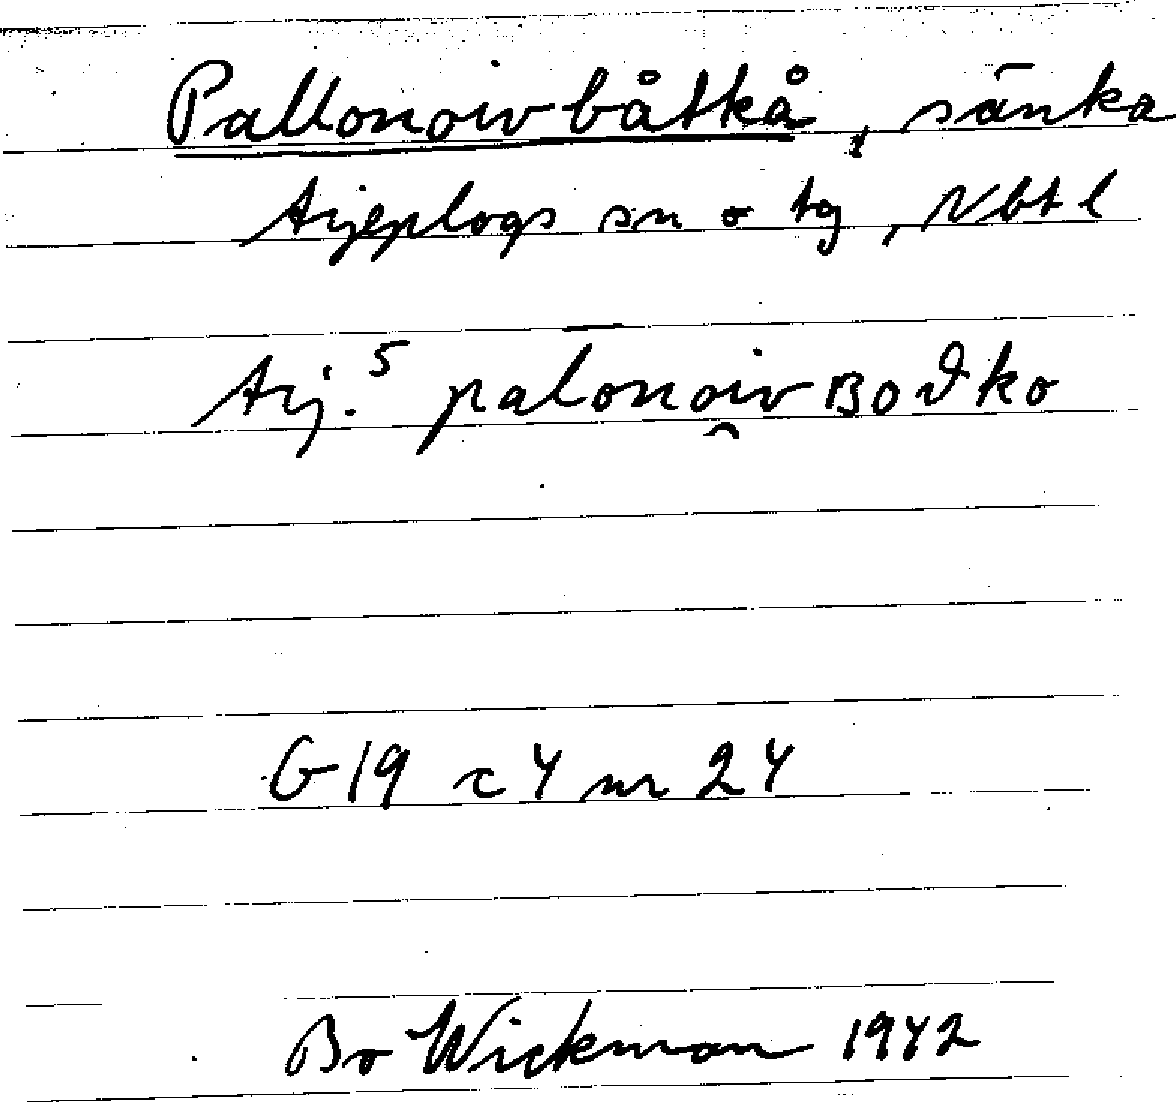 Pallonoivbåtkå, sänka
Arjeplogs sn o tg, Nbt l
Arj.⁵ palonoi̯vʙoϑko
G 19 c 4 nr 24
Bo Wickman 1942